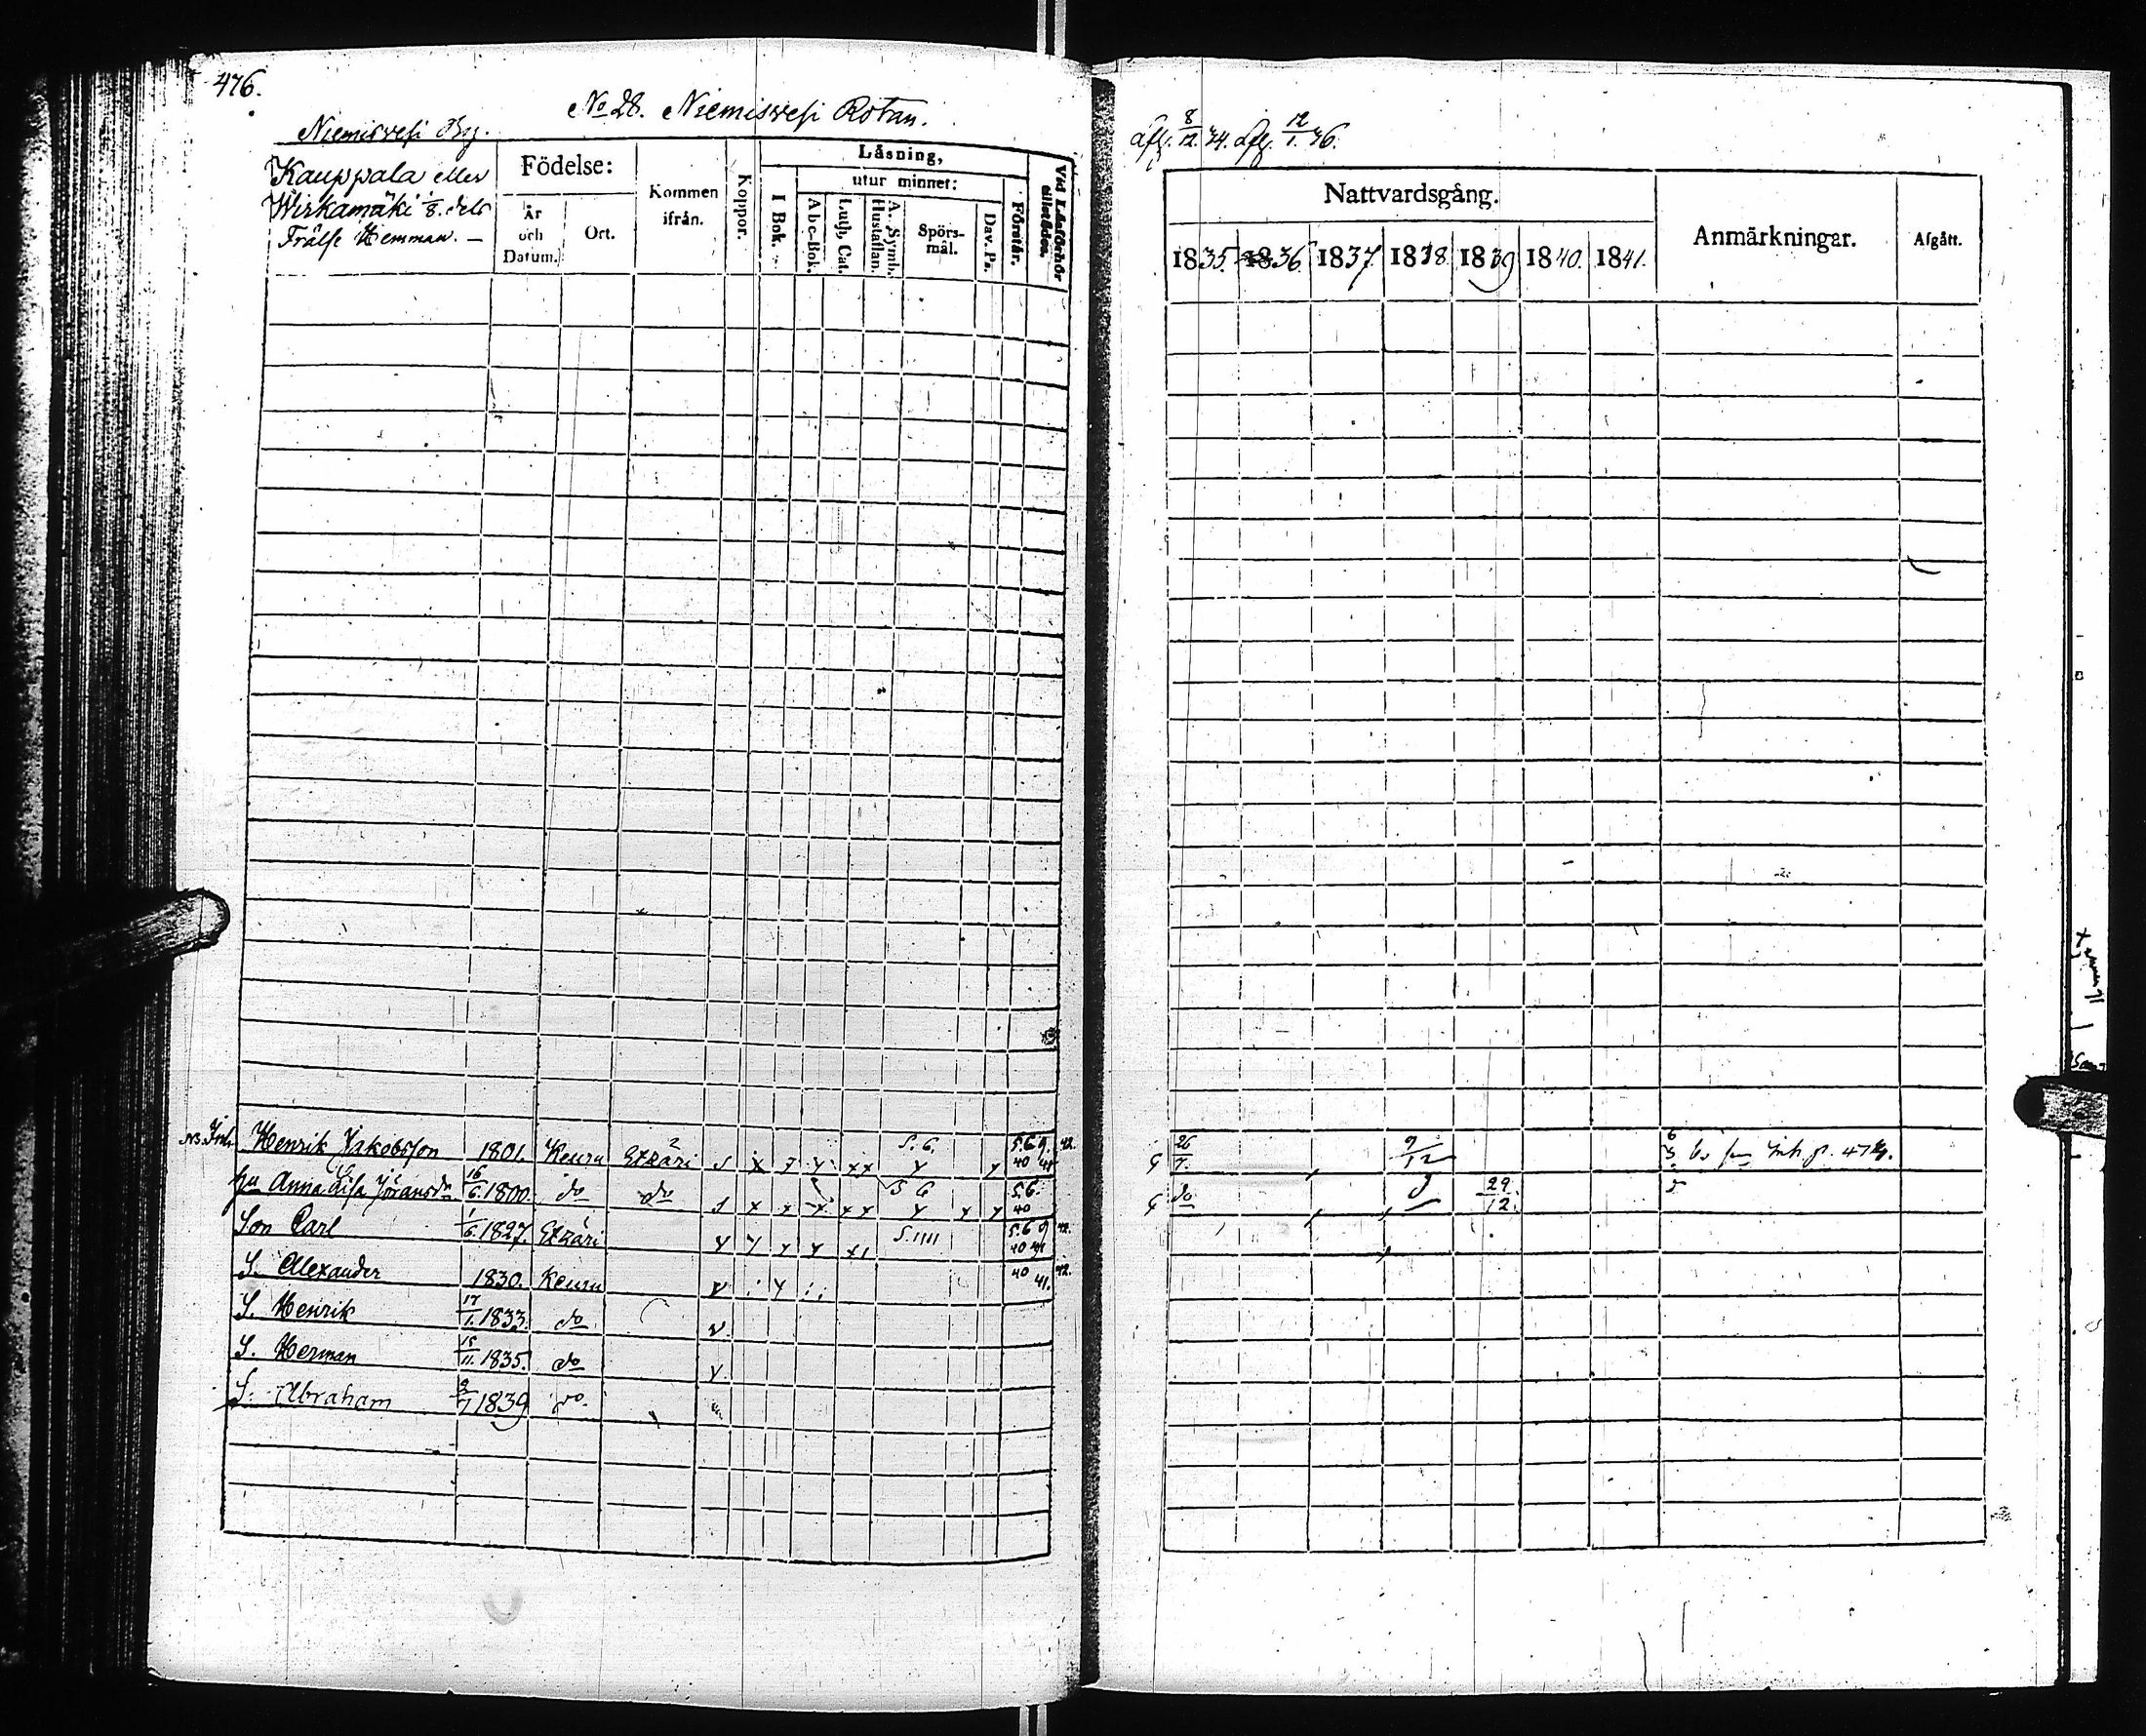 476.
No 28. Niemiswesi Rotan.
Niemiswesi By.
Kauppala eller
Wirkamäki 1/8. dels
Frälse Hemman. —
Födelse:
År och Datum.
Ort.
Kommen ifrån.
Koppor.
Läsning,
I Bok.
utur minnet:
Abc-Bok.
Luth. Cat.
A. Symb. Hustaflan.
Spörs-mål.
Dav. Ps.
Förstår.
Vid Läsförhör tillstädes.
Henrik Jakobsson 1801. Keuru Etzäri s x y y xx 5.6. y y 5.6 9. 40 41 42.
hu Anna Lisa Jöransdr 16/6. 1800. do do s x x x xx 5 6 y x y 5.6. 40
Son Carl 1/6. 1827. Etzäri y y y y x1 5.1111 5.6 9 40 41 42.
S. Alexander 1830. Keuru v y 40 41. 42.
S. Henrik 17/1. 1833. do v
S. Herman 15/11. 1835. do y
S. Abraham 2/7 1839 do.
8/12. 44. 12/1. 46.
Nattvardsgång.
Anmärkningar.
Afgått.
1835. 1836 1837. 1838. 1839 1840. 1841.
26/7. 9/12
do 29/12.